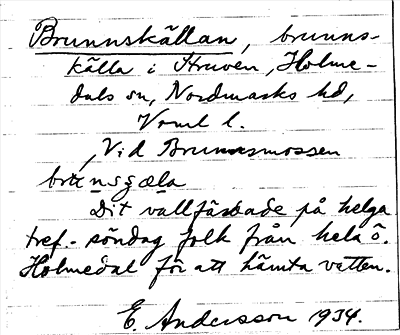 Brunnskällan, brunns-
källa i Struven, Holme-
dals sn, Nordmarks hd,
Vrml l.
Vid Brunnsmossen
brunsɟæla
Dit vallfärdade på helga
tref.-söndag folk från hela ö.
Holmedal för att hämta vatten.
E. Andersson 1934.